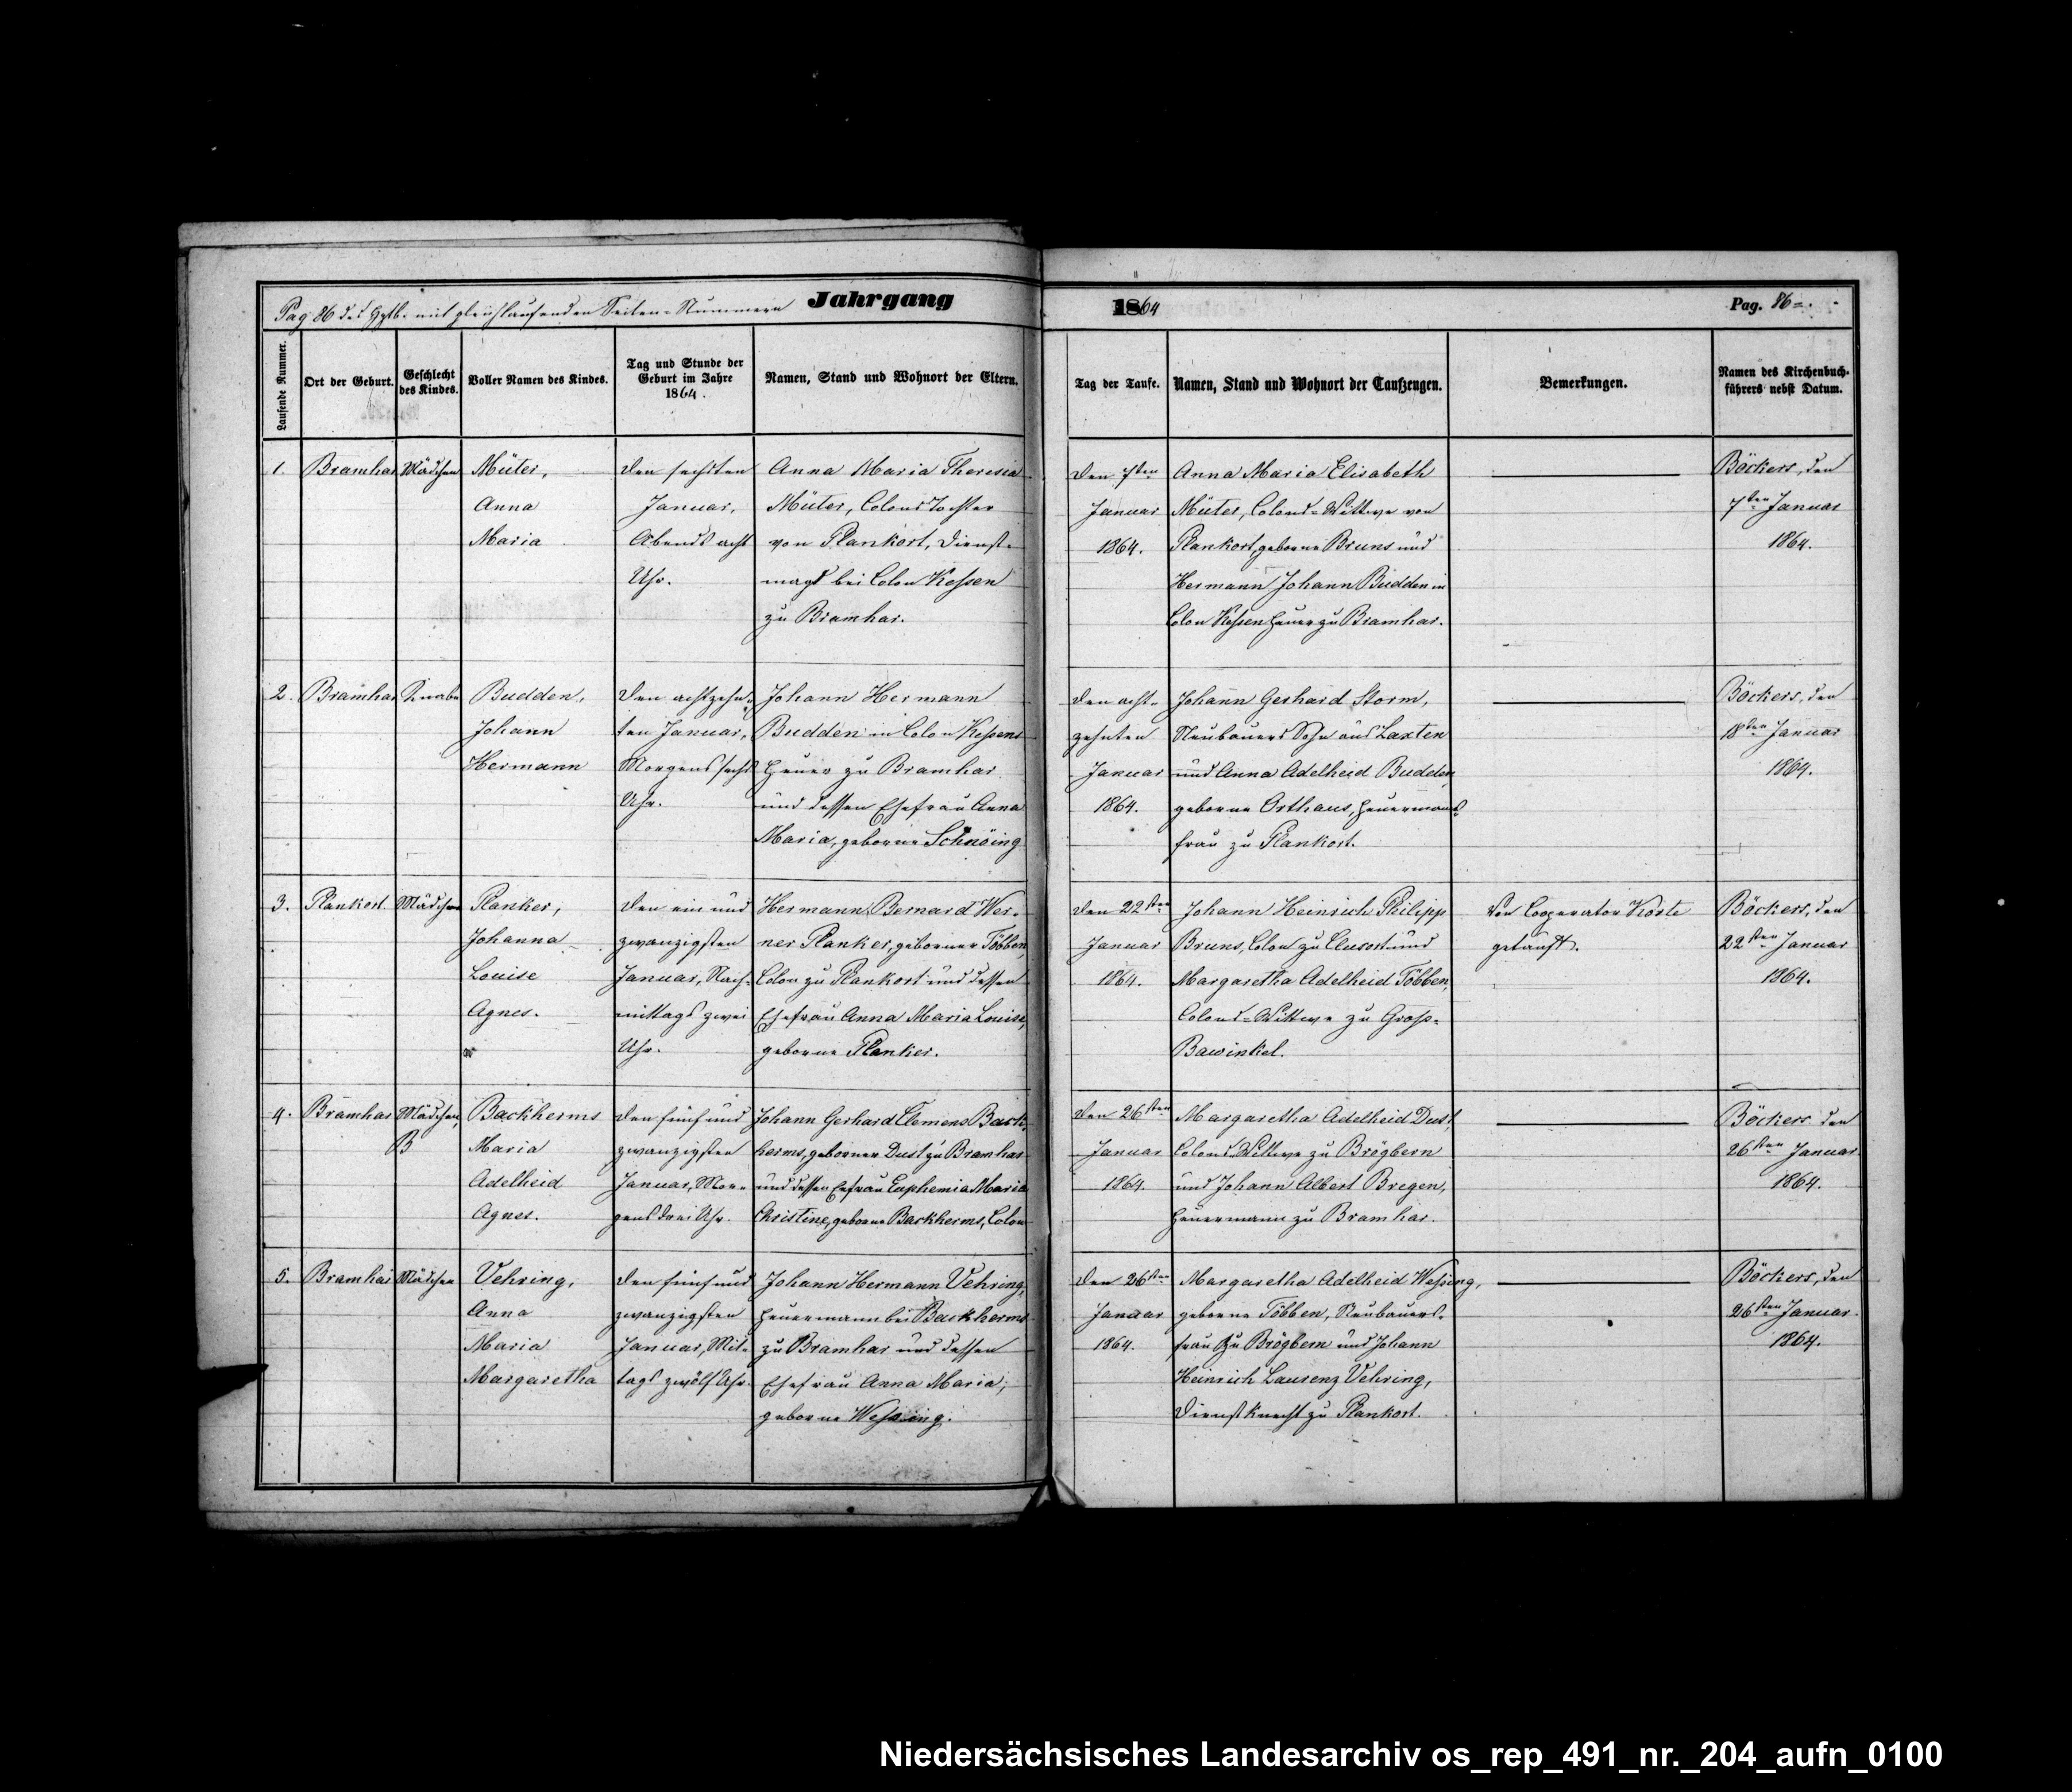 Pag 86 des Hptb. mit gleichlaufenden Seiten-Nummern Jahrgang
1864
Pag. 86
Laufende Nummer.
Ort der Geburt.
Geschlecht des Kindes.
Voller Namen des Kindes.
Tag und Stunde der Geburt im Jahre 1864.
Namen, Stand und Wohnort der Eltern.
Tag der Taufe.
Namen, Stand und Wohnort der Taufzeugen.
Bemerkungen.
Namen des Kirchenbuch-
führers nebst Datum.
1.
Bramhar
Mädchen
Müter,
Anna
Maria
Den sechsten
Januar,
Abends acht
Uhr.
Anna Maria Theresia
Müter, Colonstochter
von Plankort, Dienst-
magd bei Colon Kessen
zu Bramhar.
Den 7ten
Januar
1864.
Anna Maria Elisabeth
Müter, Colons-Wittwe von
Plankort, geborne Bruns und
Hermann Johann Budden in
Colon Kessen Heuer zu Bramhar.
Böckers, den
7ten Januar
1864.
2.
Bramhar
Knabe
Budden,
Johann
Hermann
Den achtzehn-
ten Januar,
Morgens sechs
Uhr.
Johann Hermann
Budden in Colon Kessens
Heuer zu Bramhar
und dessen Ehefrau Anna
Maria, geborne Schnöing
Den acht-
zehnten
Januar
1864.
Johann Gerhard Storm,
Neubauers Sohn aus Laxten
und Anna Adelheid Budden,
geborne Orthaus, Heuermanns-
frau zu Plankort.
Böckers, den
18ten Januar
1864.
3.
Plankort
Mädchen
Planker,
Johanna
Louise
Agnes.
Den ein und
zwanzigsten
Januar, Nach-
mittags zwei
Uhr.
Hermann Bernard Wer-
ner Planker, geborner Többen,
Colon zu Plankort und dessen
Ehefrau Anna Maria Louise,
geborne Planker.
Den 22sten
Januar
1864.
Johann Heinrich Philipp
Bruns, Colon zu Clusort und
Margaretha Adelheid Többen,
Colons-Wittwe zu Groß-
Bawinkel.
Von Cooperator Körte
getauft.
Böckers, den
22sten Januar
1864.
4.
Bramhar
Mädchen,
B
Backherms
Maria
Adelheid
Agnes.
Den fünf und
zwanzigsten
Januar, Mor-
gens drei Uhr.
Johann Gerhard Clemens Back-
herms, geborner Dust zu Bramhar
und dessen Ehefrau Euphemia Maria
Christine, geborne Backherms, Colon
Den 26sten
Januar
1864.
Margaretha Adelheid Dust,
Colons-Wittwe zu Brögbern
und Johann Albert Bregen,
Heuermann zu Bramhar.
Böckers den
26sten Januar
1864.
5.
Bramhar
Mädchen
Vehring,
Anna
Maria
Margaretha
Den fünf und
zwanzigsten
Januar, Mit-
tags zwölf Uhr.
Johann Hermann Vehring,
Heuermann bei Backherms
zu Bramhar und dessen
Ehefrau Anna Maria,
geborne Wessing.
Den 26sten
Januar
1864.
Margaretha Adelheid Wessing,
geborne Többen, Neubauers-
frau zu Brögbern und Johann
Heinrich Laurenz Vehring,
Dienstknecht zu Plankort.
Böckers, den
26sten Januar
1864.
Niedersächsisches Landesarchiv os_rep_491_nr._204_aufn_0100